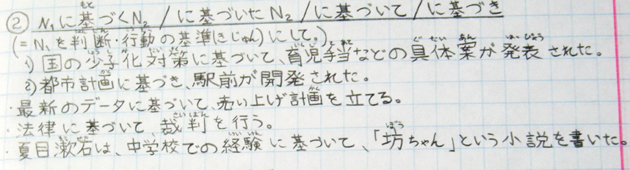 ② N₁に基づくN₂/に基づいたN₂/に基づいて/に基づき
(=N₁を判断・行動の基準(きじゅん)にして。)
1) 国の少子化対策に基づいて、育児手当などの具体案が発表された。
2) 都市計画に基づき、駅前が開発された。
・最新のデータに基づいて、売り上げ計画を立てる。
・法律に基づいて、裁判を行う。
・夏目漱石は、中学校での経験に基づいて、「坊ちゃん」という小説を書いた。